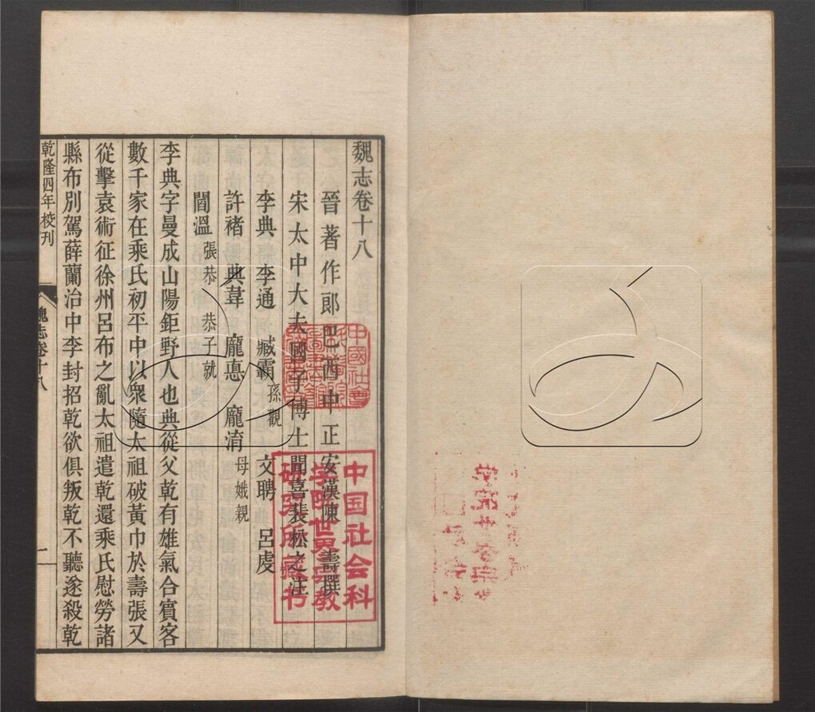 魏志卷十八
晉著作郎巴西中正安漢陳壽撰
宋太中大夫國子博士聞喜裴松之注
李典 李通 臧霸 孫觀 文聘 呂虔
許褚 典韋 龐悳 龐淯 母娥親
閻溫 張恭 恭子就
李典字曼成山陽鉅野人也典從父乾有雄氣合賓客
數千家在乘氏初平中以衆隨太祖破黃巾於壽張又
從擊袁術征徐州呂布之亂太祖遣乾還乘氏慰勞諸
縣布別駕薛蘭治中李封招乾欲俱叛乾不聽遂殺乾
乾隆四年校刊
魏志卷十八
一
中国社会科
学院世界宗教
研究所藏书